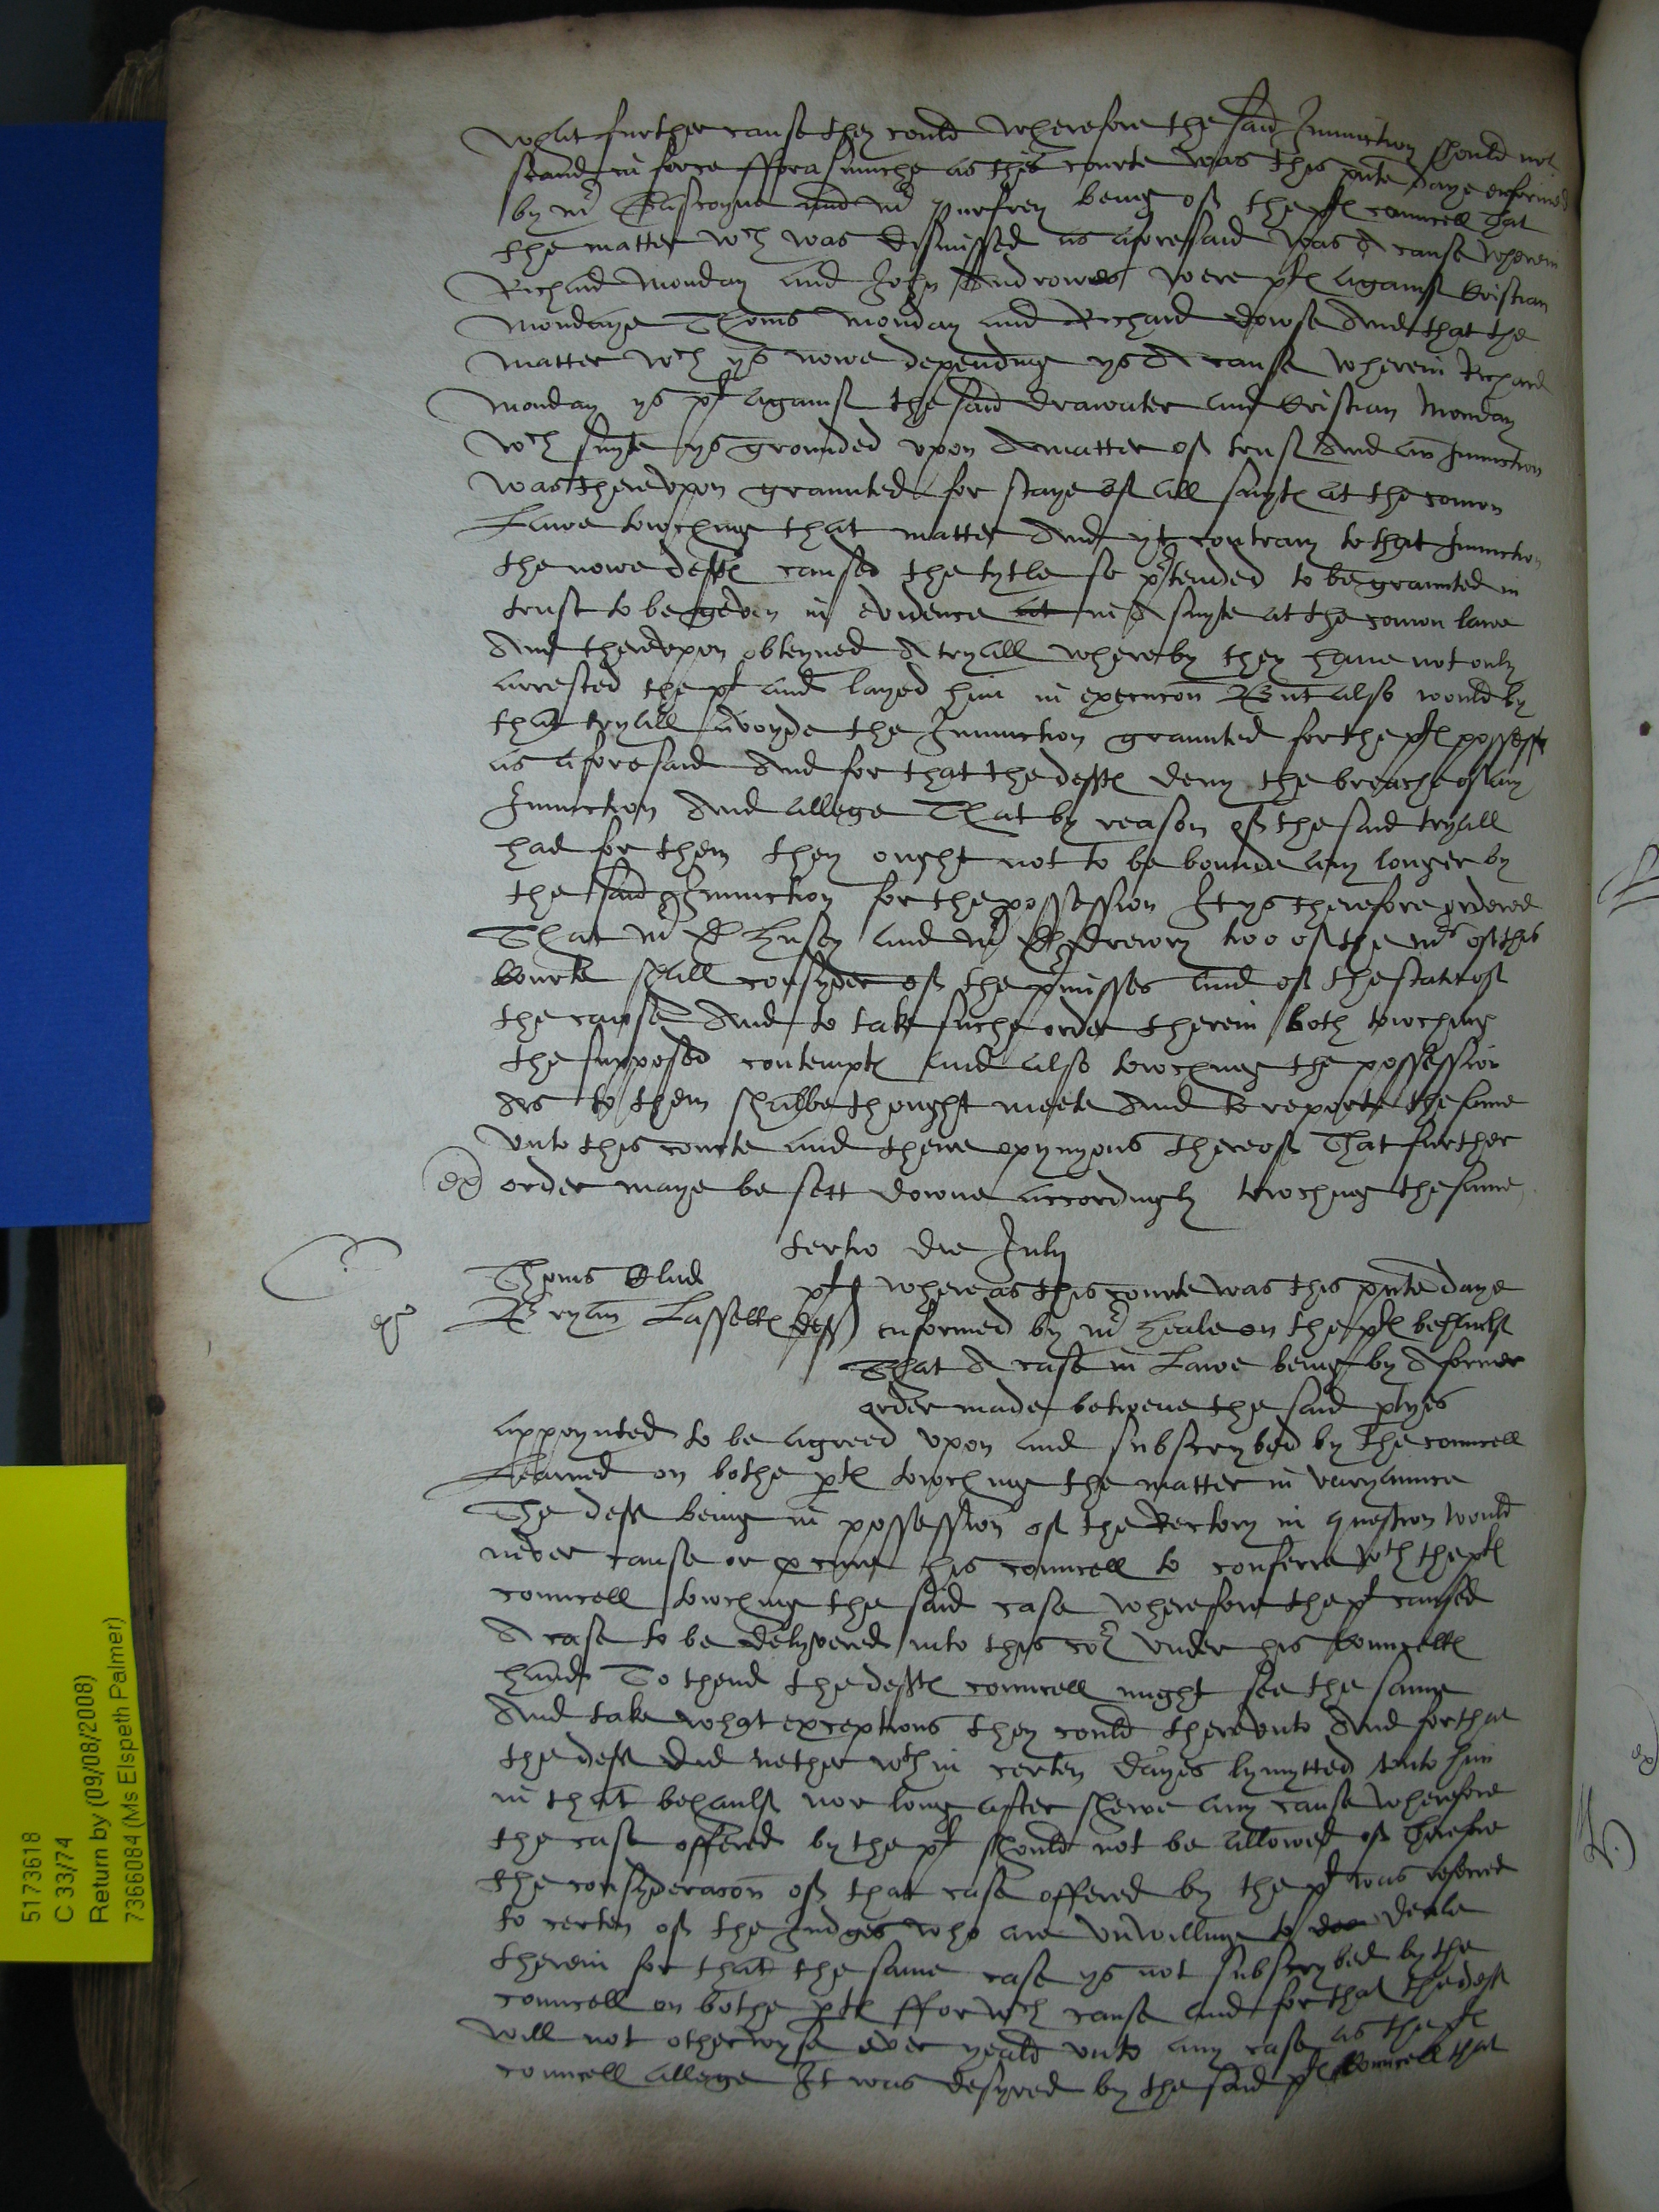 what further cause they could wherefore the said Iniunction should not
stand in force fforasmuche as this courte was this pnte daye enformed
by mr Gascoigne and mr purfrey being of the pl councell That
the matter wch was dismissed as aforesaid was A cause wherein
Richard Monday and John Androwes were pl against Cristian
Mondaye Thoms Monday and Richard dowse And that the
matter wch ys nowe depending ys A cause wherein Richard
Monday ys pl against the said drawater and Cristian Monday
wch suyte ys grounded vpon A matter of trust And an Iniunction
was therevpon graunted for staye of all suyte at the comon
Lawe towching that matter And yt contrary to that Iniunction
the nowe deftes caused the tytle so prtended to be graunted in
trust to be geven in evidence at in A suyte at the comon lawe
And therevpon obteyned A tryall whereby they haue not only
arrested the pl and layed him in execucon But also would by
that tryall avoyde the Iniunction graunted for the pl possession
as aforesaid And for that the deftes deny the breache of any
Iniunction And allege That by reason of the said tryall
had for them they ought not to be bounde any longer by
the said Iniunction for the possession It ys therefore ordered
That mr D Husey and mr D drewry two of the mrs of this
Courte shall consyder of the prmisses and of the state of
the cause And to take suche order therein both towching
the supposed contempte and also towching the possession
As to them shalbe thought meete And to reporte the same
vnto this courte and there opynyons thereof That further
order maye be sett downe accordingly towching the same
tertio die July
Thoms
Bryan Lasselles deft
pl whereas this courte was this pnte daye
enformed by mr Heale on the pl behaulf
That A case in Lawe being by A former
order made betwene the said ptyes
appoynted to be agreed vpon and subscrybed by the councell
Learned on bothe ptes towching the matter in varyaunce
The deft being in possession of the Rectory in question would
never cause or pcure his councell to conferre wth the pl
councell towching the said case wherefore the pl caused
A case to be delyvered into this cor vnder his Councelles
hand To thend the deftes councell might see the same
And take what exceptions they could therevnto And for that
the deft did nether wthin certen dayes lymytted vnto him
in that behaulf nor long after shewe any cause wherefore
the case offered by the pl should not be allowed of Therefore
the consyderacon of that case offered by the pl was referred
to certen of the Iudges who are vnwilling to dea deale
therein for that the same case ys not subscrybed by the
councell on bothe ptes ffor wch cause and for that the deft
will not otherwyse ever yeald vnto any case as the pl
councell allege It was desyred by the said pl Councell that
5173618
C 33/74
Return by (09/08/2008)
7366084 (Ms Elspeth Palmer)